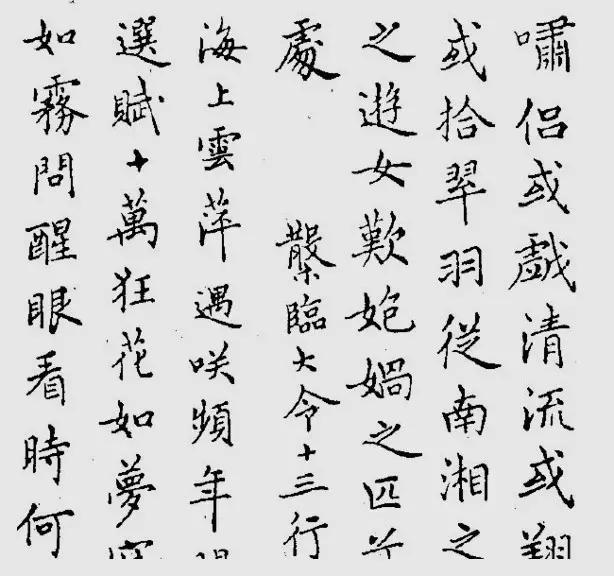 嘯侶或戲清流或翔
或拾翠羽從南湘之
之遊女歎匏媧之匹兮
處
檠臨大令十三行
海上雲萍遇咲頻年
選賦十萬狂花如夢寐
如霧問醒眼看時何